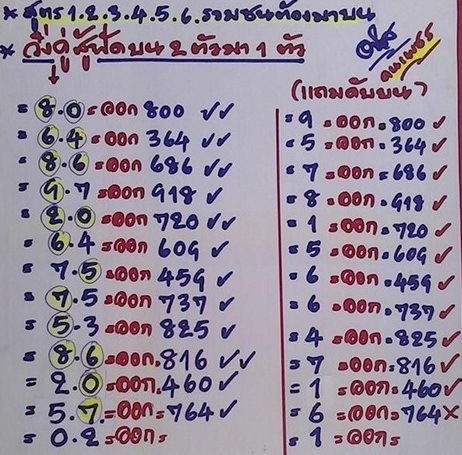 * สูตร 1.2.3.4.5.6. รวมชนต้องมาบน
* วิ่งคู่ลุ้นโดบน 2 ตัวมา 1 ตัว
คนเพชร
(แถมดับบน)
= 8.0 = ออก 800 ✓✓
= 6.4 = ออก 364 ✓✓
= 8.6 = ออก 686 ✓✓
= 9.7 = ออก 918 ✓
= 2.0 = ออก 720 ✓✓
= 6.4 = ออก 609 ✓
= 7.5 = ออก 459 ✓
= 7.5 = ออก 737 ✓
= 5.3 = ออก 825 ✓
= 8.6 = ออก. 816 ✓✓
= 2.0 = ออก. 460 ✓
= 5.7. = ออก = 764 ✓
= 0.2 = ออก =
= 9 = ออก = 800 ✓
= 5 = ออก = 364 ✓
= 7 = ออก = 686 ✓
= 8 = ออก = 918 ✓
= 1 = ออก = 720 ✓
= 5 = ออก = 609 ✓
= 6 = ออก = 459 ✓
= 6 = ออก = 737 ✓
= 4 = ออก = 825 ✓
= 7 = ออก = 816 ✓
= 1 = ออก = 460 ✓
= 6 = ออก = 764 ×
= 1 = ออก =